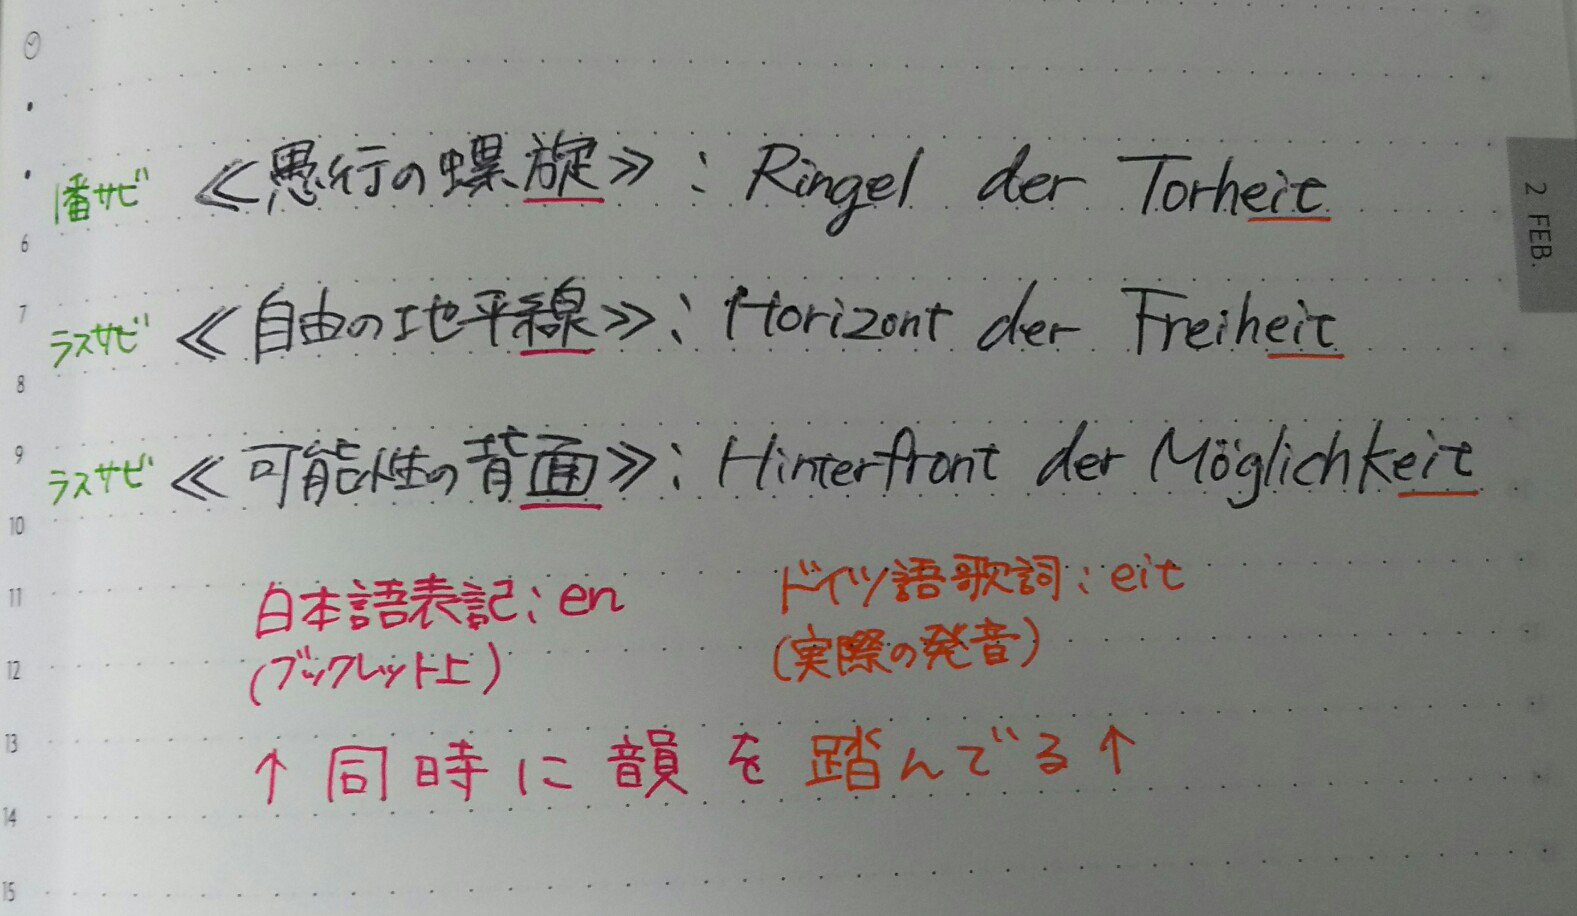 1番サビ ≪愚行の螺旋≫：Ringel der Torheit
ラスサビ ≪自由の地平線≫：Horizont der Freiheit
ラスサビ ≪可能性の背面≫：Hinterfront der Möglichkeit
日本語表記：en ドイツ語歌詞：eit
(ブックレット上) (実際の発音)
↑同時に韻を踏んでる↑
2 FEB.
6
7
8
9
10
11
12
13
14
15